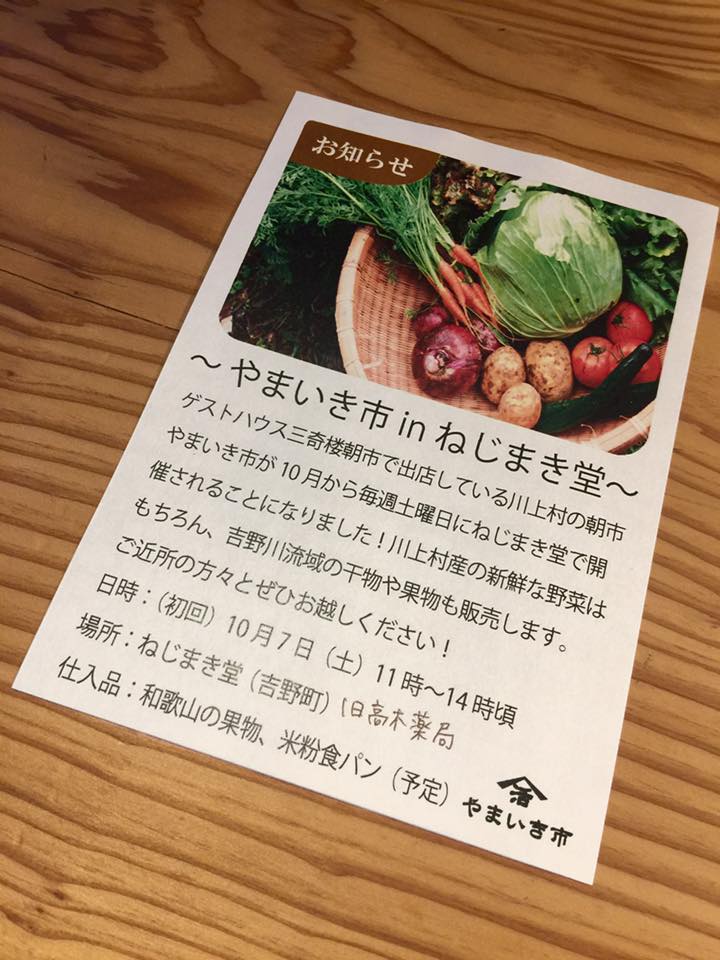 お知らせ
～やまいき市 in ねじまき堂～
ゲストハウス三奇楼朝市で出店している川上村の朝市
やまいき市が10月から毎週土曜日にねじまき堂で開
催されることになりました！川上村産の新鮮な野菜は
もちろん、吉野川流域の干物や果物も販売します。
ご近所の方々とぜひお越しください！
日時：（初回）10月7日（土）11時～14時頃
場所：ねじまき堂（吉野町）旧高木薬局
仕入品：和歌山の果物、米粉食パン（予定）
やまいき市